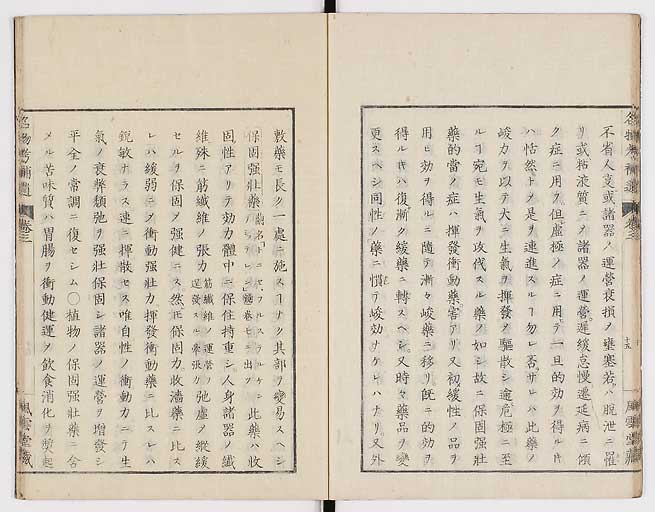 不省人支或諸器ノ運營衰損ノ壅塞若ハ脫泄ニ罹
リ或粘液質ニノ諸器ノ運營遲緩怠慢遷延病ニ傾
ク症ニ用ク但虛極ノ症ニ用テ一旦的効ヲ得ルキ
ハ怙然トノ是ヲ連進スルヿ勿レ否サレハ此藥ノ
峻力ヲ以テ大ニ生氣ヲ揮發ノ驅散シ逾危極ニ至
ルヿ宛モ生氣ヲ攻伐スル藥ノ如シ故ニ保固強壯
藥的當ノ症ハ揮發衝動藥害アリ又初緩性ノ品ヲ
用ヒ効ヲ得ルニ隨テ漸々峻藥ニ移リ既ニ的効ヲ
得ルキハ復漸ク緩藥ニ轉スヘシ又時々藥品ヲ變
更スヘシ同性ノ藥ニ慣テ峻効ナケヒハナリ又外
敷藥モ長ク一處ニ施スヿナク其部ヲ變易スヘシ
保固強壯藥 此藥ハ收
固性アリテ効力體中ニ保住持重シ人身諸器ノ纖
維殊ニ筋纖維ノ張力 弛虛ヲ縱緩
セルヲ保固ノ強健ニス然モ保固力收濇藥ニ比ス
レハ緩弱ニノ衝動強壯力揮發衝動藥ニ比スレハ
銳敏ナラス速ニ揮散セス唯自性ノ衝動力ニテ生
氣ノ衰弊類弛ヲ強壯保固シ諸器ノ運營ヲ增發シ
平全ノ常調ニ復セシム○植物ノ保固強壯藥ニ含
メル苦味質ハ胃腸ヲ衝動健運ノ飮食消化ヲ奬起
名物考補遺 卷三
風雲堂藏